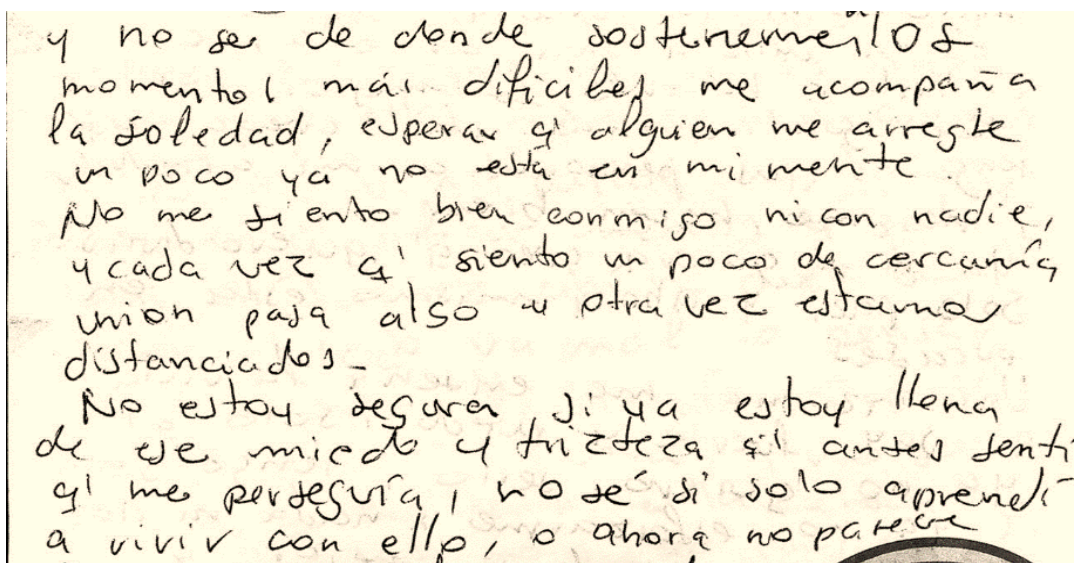 y no se de donde sostenerme, los
momentos más dificiles me acompaña
la soledad, esperar q' alguien me arregle
un poco ya no está en mi mente.
No me siento bien conmigo ni con nadie,
y cada vez q' siento un poco de cercanía
union pasa algo y otra vez estamos
distanciados_
No estoy segura si ya estoy llena
de ese miedo y trizteza q' antes sentí
q' me perseguía, no sé si solo aprendí
a vivir con ello, o ahora no parece